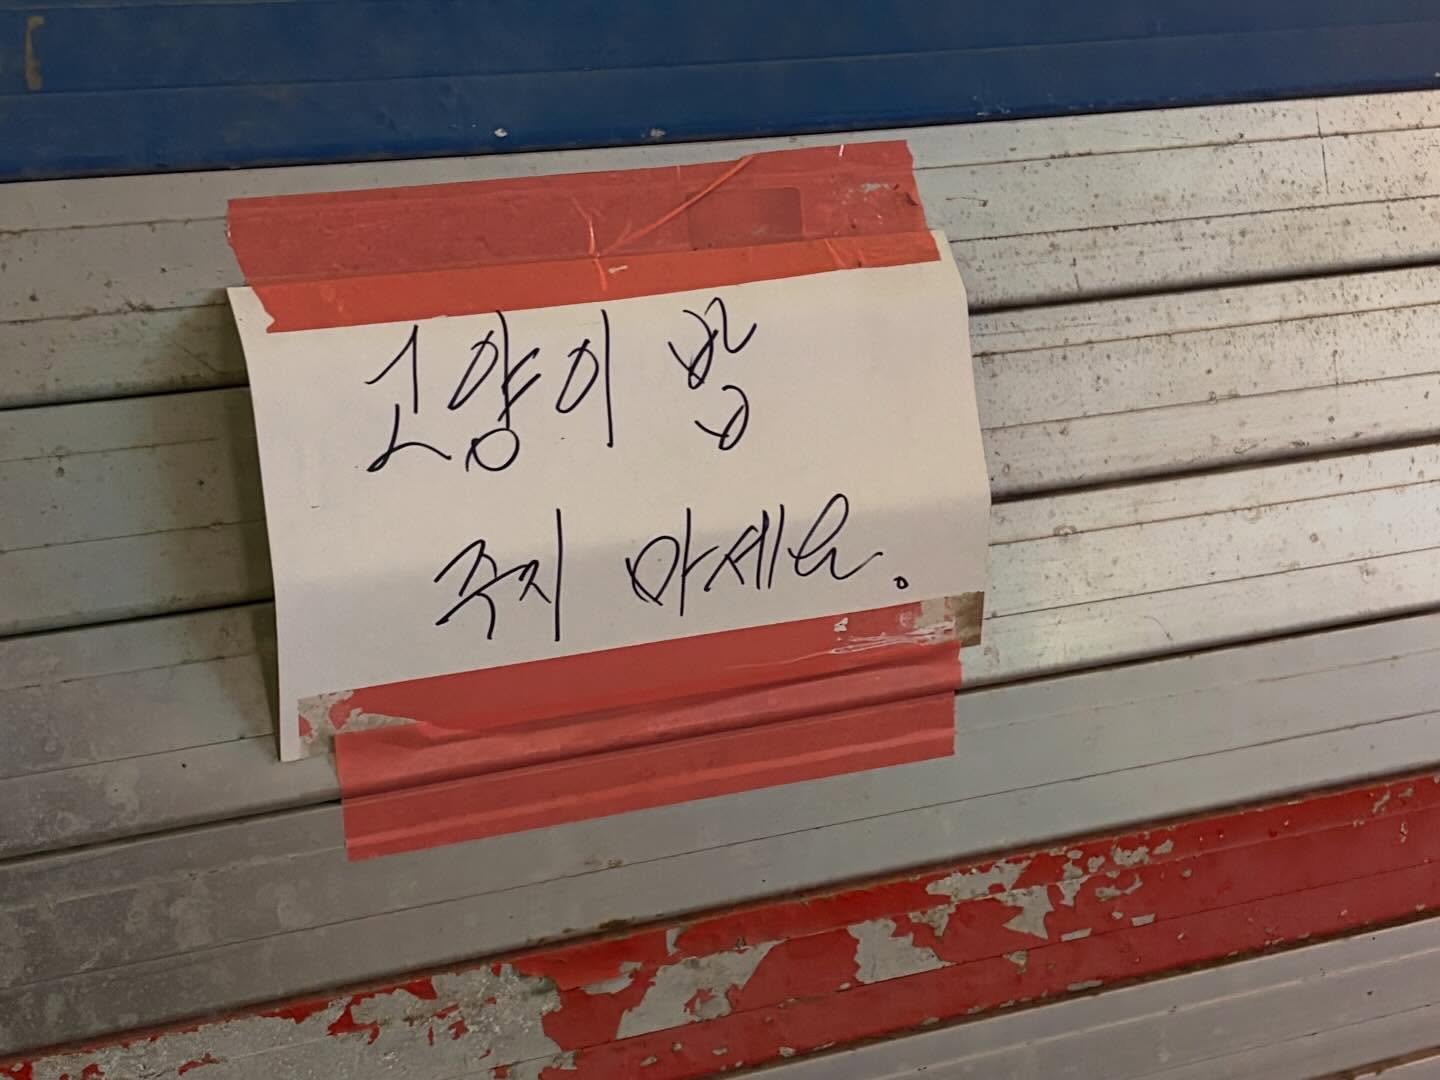 고양이 밥
주지 마세요.